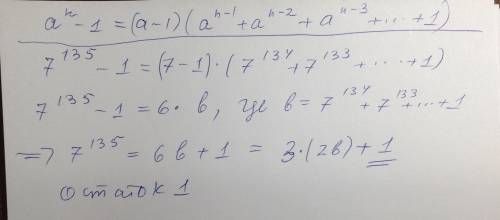 aⁿ - 1 = (a-1)(aⁿ⁻¹ + aⁿ⁻² + aⁿ⁻³ + ... + 1)
7¹³⁵ - 1 = (7-1)·(7¹³⁴ + 7¹³³ + ... + 1)
7¹³⁵ - 1 = 6·b, где b = 7¹³⁴ + 7¹³³ + ... + 1
=> 7¹³⁵ = 6b + 1 = 3·(2b) + 1
Остаток 1